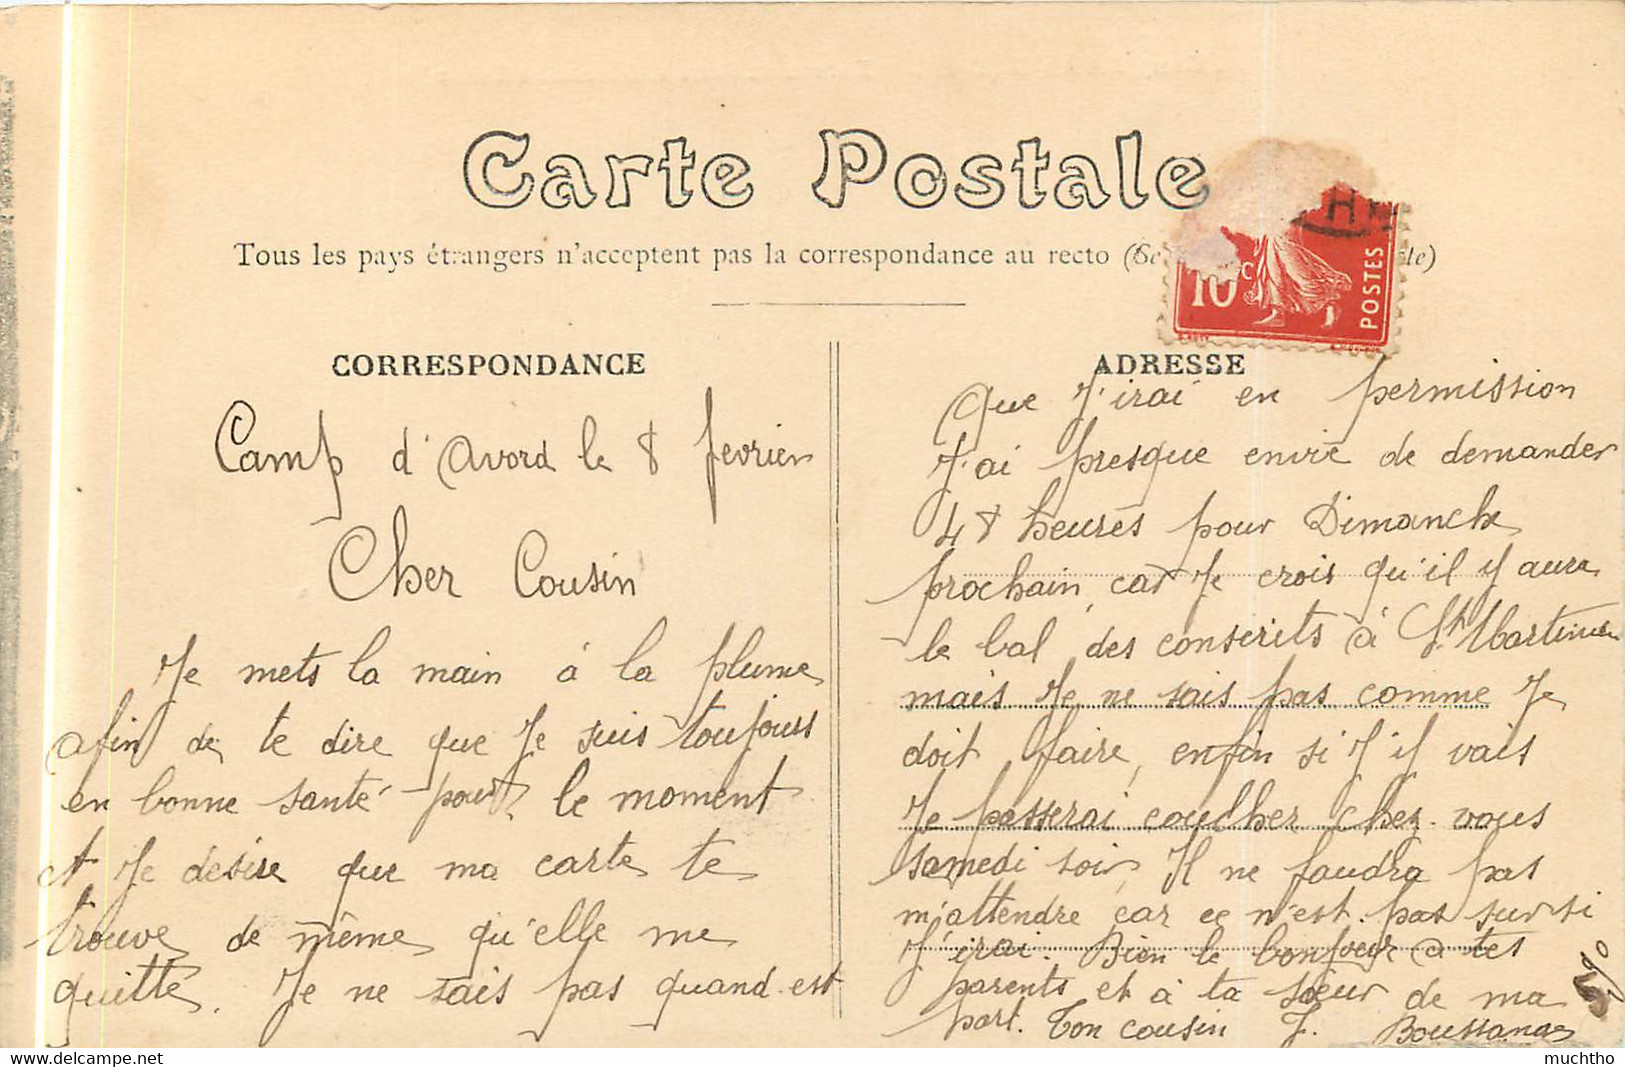 Carte Postale
Tous les pays étrangers n'acceptent pas la correspondance au recto
10c
POSTES
CORRESPONDANCE
Camp d'Avord le 8 fevrier
Cher Cousin
Je mets la main à la plume
afin de te dire que Je suis toujours
en bonne santé pour le moment
et Je desire que ma carte te
trouve de même qu'elle me
quitte. Je ne sais pas quand est
ADRESSE
Que J'irai en permission
J'ai presque envie de demander
48 heures pour Dimanche
prochain, car Je crois qu'il y aura
le bal des conscrits à
mais Je ne sais pas comme Je
doit faire, enfin si J'il vais
Je passerai coucher chez vous
samedi soir, Il ne faudra pas
m'attendre car ce n'est pas sur si
J'irai. Bien le bonjour a tes
parents et à ta sœur de ma
part. Ton cousin J.
muchtho